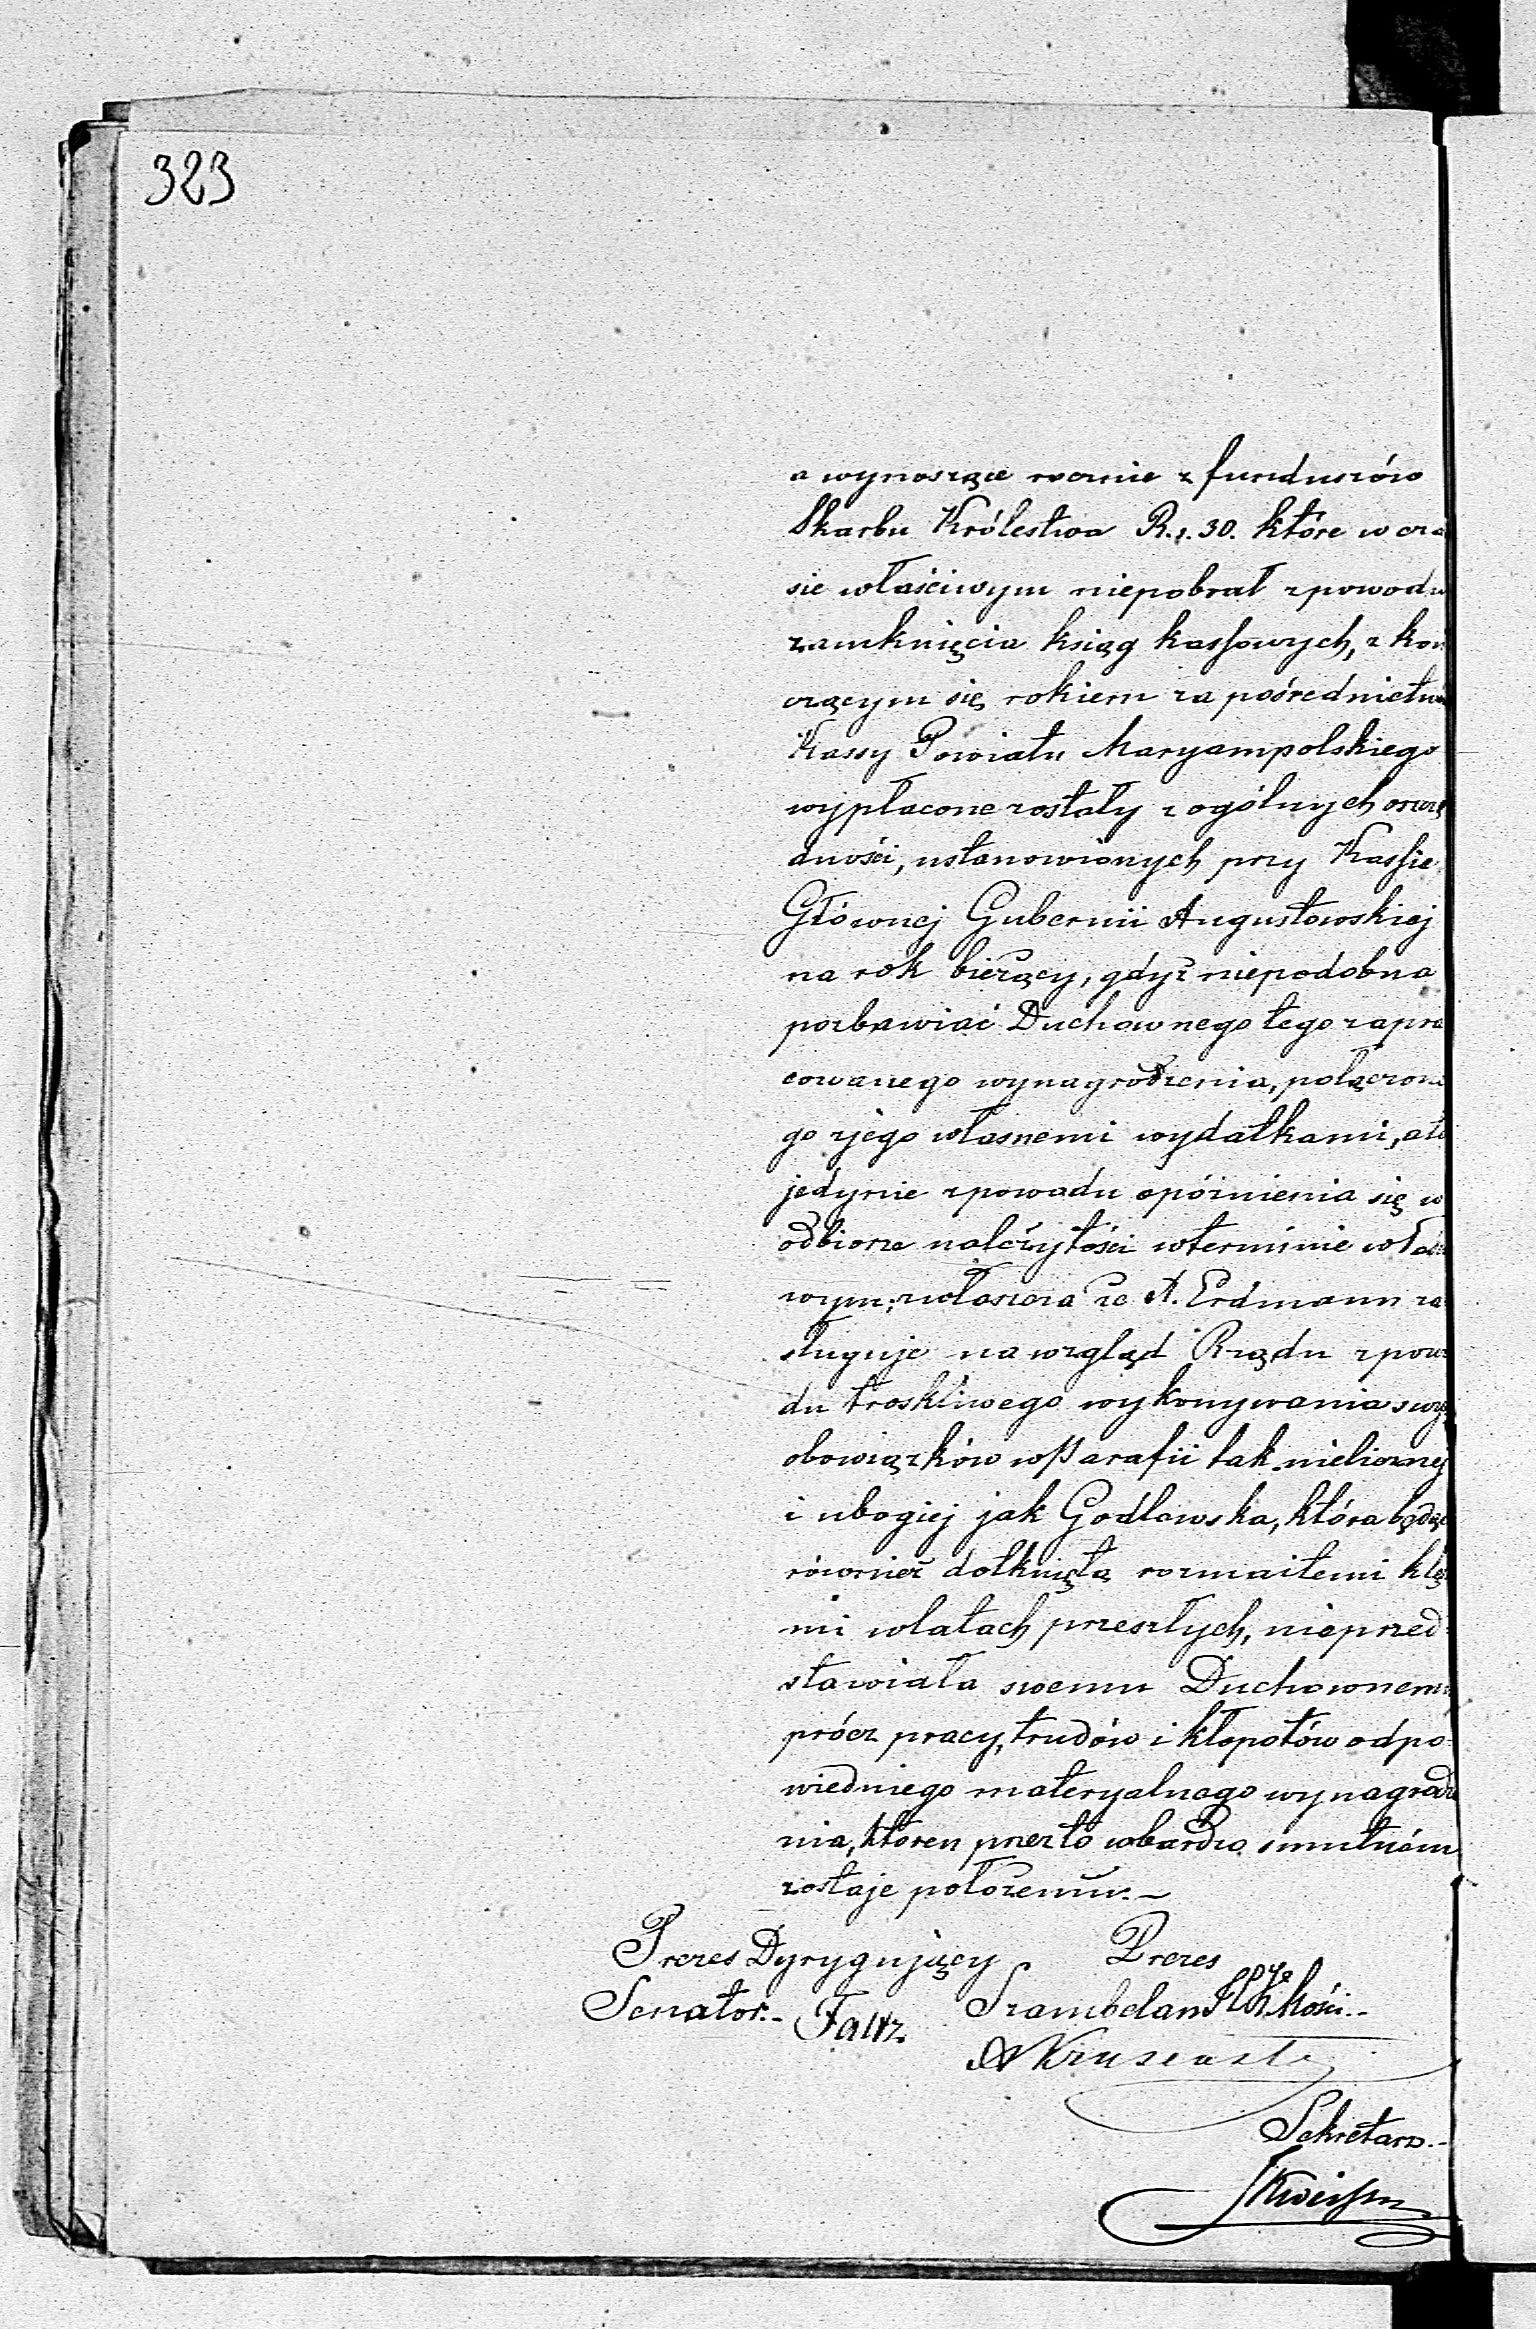 323
a wynoszące rocznie z funduszów
Skarbu Królestwa R.s. 30. które w cza
sie właściwym niepobrał zpowodu
zamknięcia ksiąg kassowych, z koń
czącym się rokiem za pośrednictw
Kassy Powiatu Maryampolskiego
wypłacone zostały z ogólnych oszczę
dności, ustanowionych przy Kassie
Głównej Gubernii Augustowskiej
na rok bieżący, gdyż niepodobna
pozbawiać Duchownego tego zapra
cowanego wynagrodzenia, połączone
go zjego własnemi wydatkami, a to
jedynie zpowodu opóźnienia się w
odbiorze należytości wterminie właści
wym; zwłaszcza że A. Erdmann za
sługuje na wzgląd Rządu zpowo
du troskliwego wykonywania swych
obowiązków wParafii tak nielicznej
i ubogiej jak Godlewska, która będąc
również dotknięta rozmaitemi klęs
mi wlatach przeszłych, nieprzed
stawiała swemu Duchownemu
prócz pracy, trudów i kłopotów odpo
wiedniego materyalnego wynagrodze
nia, któren przeto wbardzo smutném
zostaje położeniu.
Prezes Dyrygujący Prezes
Senator. Faltz Szambelan JCKMości.
AKruse
Sekretarz.